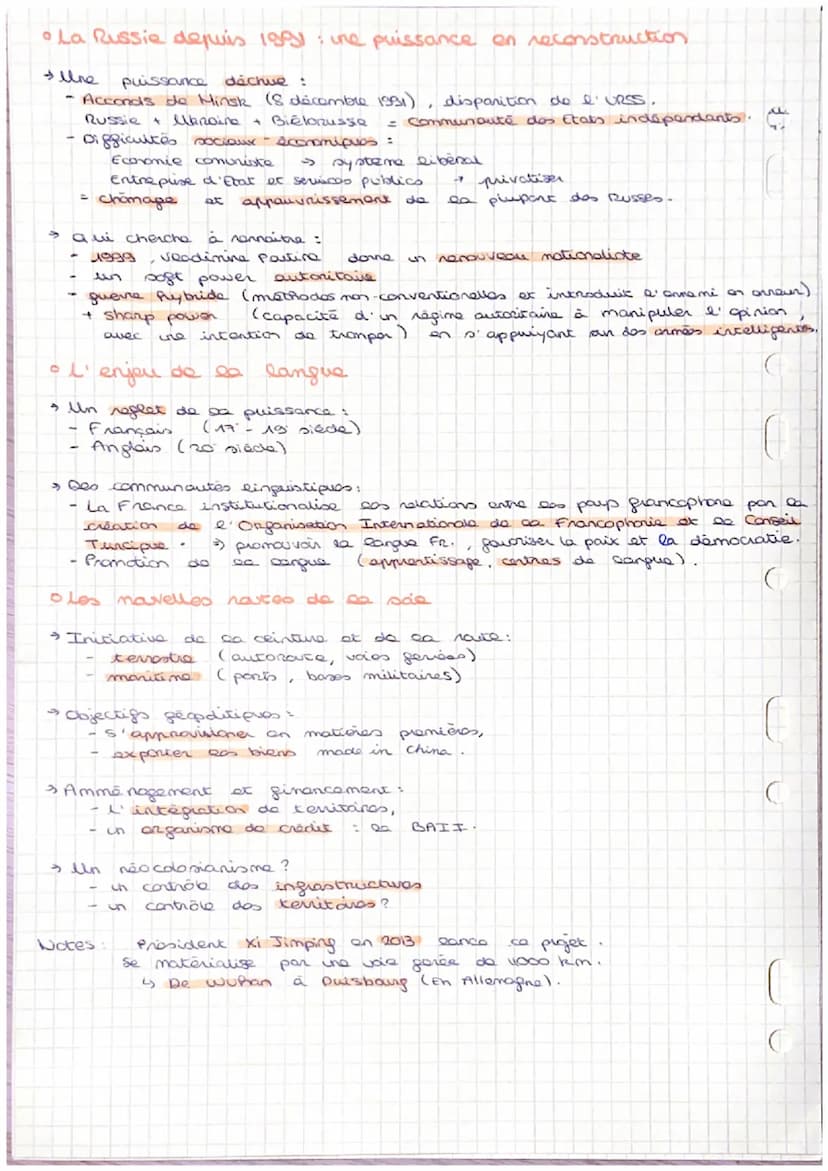 ° La Russie depuis 1991 : une puissance en reconstruction
→ Une puissance déchue :
- Accords de Minsk (8 décembre 1991), disparition de l'URSS.
Russie + Ukraine + Biélorusse = Communauté des Etats indépendants.
- Difficultés sociaux-économiques :
Economie comuniste → système libéral
Entreprise d'Etat et services publics → privatiser
= chômage et appauvrissement de la plupart des Russes.
→ qui cherche à rennaitre :
- 1999, Vladimine Poutine donne un renouveau nationaliste
- un soft power autoritaire
- guerre hybride (méthodes non-conventionelles et introduit l'ennemi en erreur)
+ sharp power (capacité d'un régime autoritaire à manipuler l'opinion,
avec une intention de tromper) en s'appuyant sur des armées intelligentes.
° L'enjeu de la langue
→ Un reflet de sa puissance :
- Français (17 - 19 siècle)
- Anglais (20 siècle)
→ Des communautés linguistiques :
- La France institutionalise ses relations entre les pays francophone par la
création de l'Organisation Internationale de la Francophonie et le Conseil
. → promouvoir la langue Fr., favoriser la paix et la démocratie.
- Promotion de la langue (apprentissage, centres de langue).
° Les nouvelles routes de la soie
→ Initiative de la ceinture et de la route :
- terrestre (autoroute, voies ferrées)
- maritime (ports, bases militaires)
→ Objectifs géopolitiques :
- s'approvisioner en matières premières,
- exporter les biens made in China.
→ Amménagement et financement :
- L'intégration de territoires,
- un organisme de crédit : la BAII.
→ Un néocolonianisme ?
- un contrôle des infrastructures
- un contrôle des territoires ?
Notes : Président Xi Jimping en 2013 lance ce projet.
Se matérialise par une voie ferrée de 11000 km.
↳ De Wuhan à Duisbourg (En Allemagne).